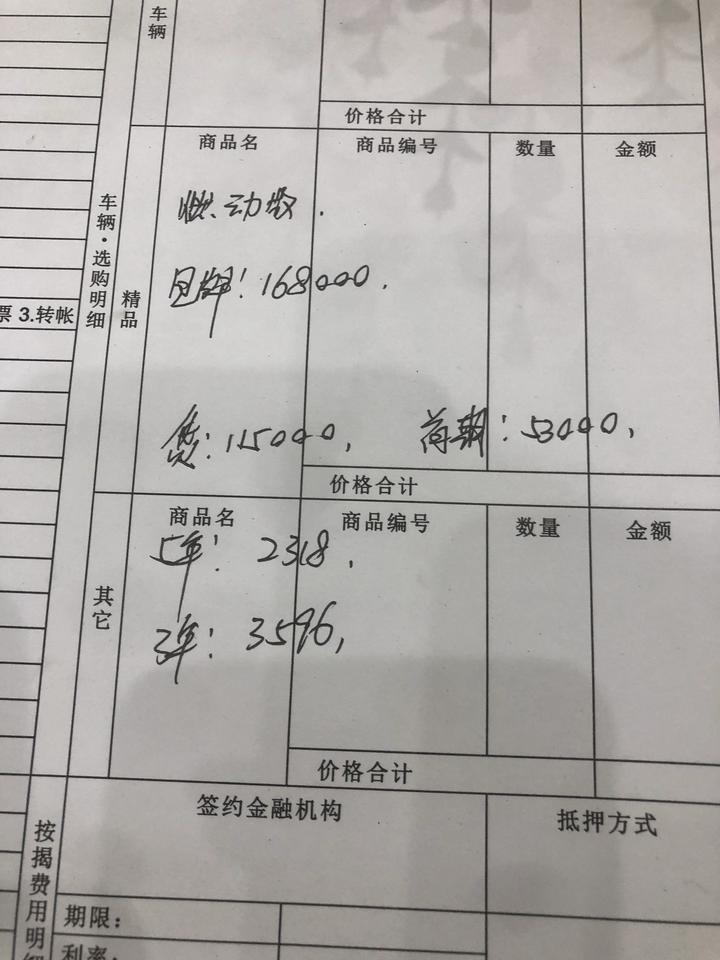 车辆
价格合计
车辆·选购明细
精品
商品名 商品编号 数量 金额
燃动版.
包牌:168000.
贷:115000, 首期:53000,
价格合计
票 3.转帐
其它
商品名 商品编号 数量 金额
5年:2318,
3年:3596,
价格合计
按揭费用明细
签约金融机构 抵押方式
期限:
利率: